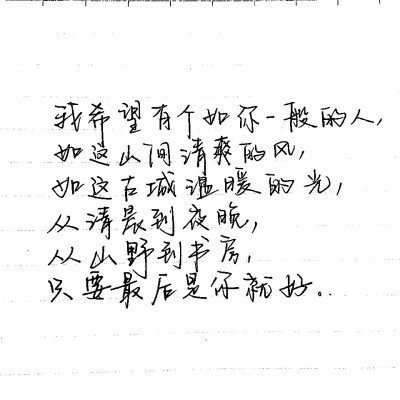 我希望有个如你一般的人,
如这山间清爽的风,
如这古城温暖的光,
从清晨到夜晚,
从山野到书房,
只要最后是你就好..